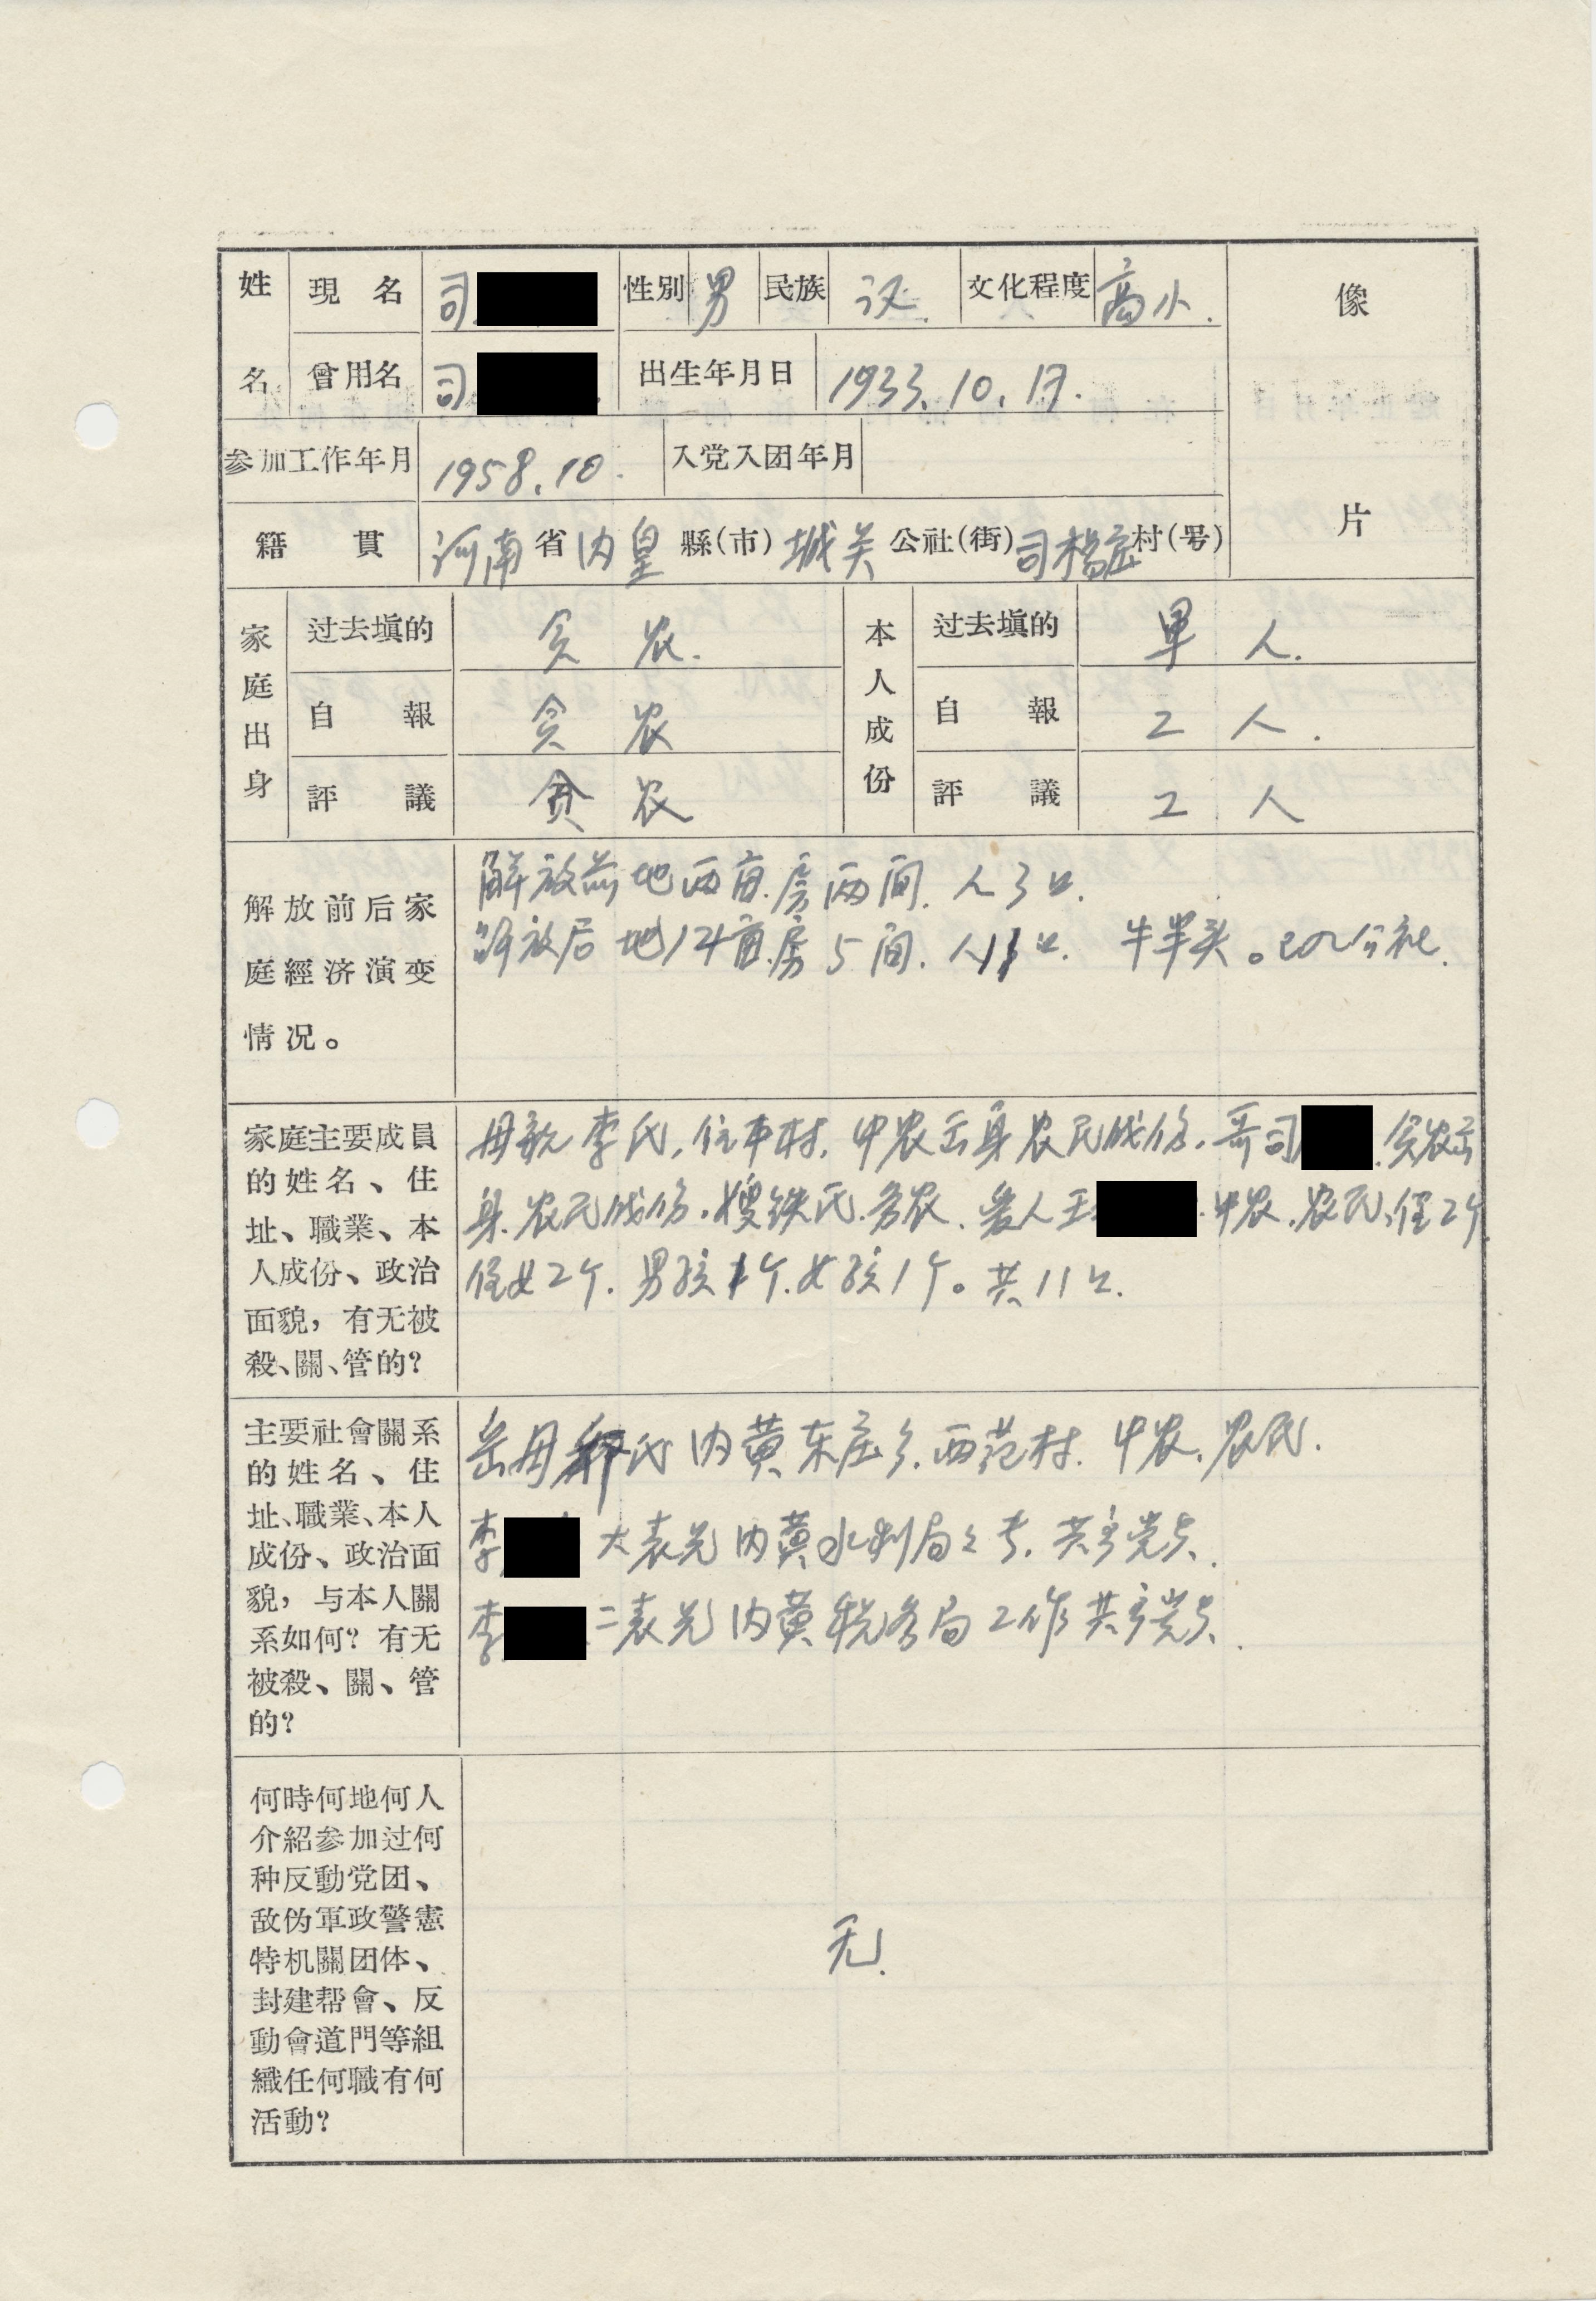 姓名 現名 司 性別 男 民族 汉. 文化程度 高小. 像片
曾用名 司 出生年月日 1933.10.17.
参加工作年月 1958.10. 入党入团年月
籍貫 河南省内皇縣(市)城关公社(街)司 村(号)
家庭出身 过去填的 贫农. 本人成份 过去填的 軍人.
自報 贫农 自報 工人.
評議 贫农 評議 工人
解放前后家
庭經济演变
情况。
解放前地两亩.房两间.人3口.
解放后地14亩.房5间.人11口. 牛半头。 公社.
家庭主要成員
的姓名、住
址、職業、本
人成份、政治
面貌,有无被
殺、關、管的?
母親李氏,住本村,中农出身农民成份.哥司 .贫农出
身.农民成份.嫂铁氏.务农.爱人王 .中农.农民,侄2个
侄女2个.男孩1个.女孩1个。共11口.
主要社會關系
的姓名、住
址、職業、本人
成份、政治面
貌,与本人關
系如何?有无
被殺、關、管
的?
岳母 氏内黄东庄乡.西范村.中农.农民.
李 大表兄内黄水利局 .共产党员.
李 二表兄内黄税务局工作共产党员.
何時何地何人
介紹参加过何
种反動党团、
敌伪軍政警憲
特机關团体、
封建帮會、反
動會道門等組
織任何職有何
活動?
无.